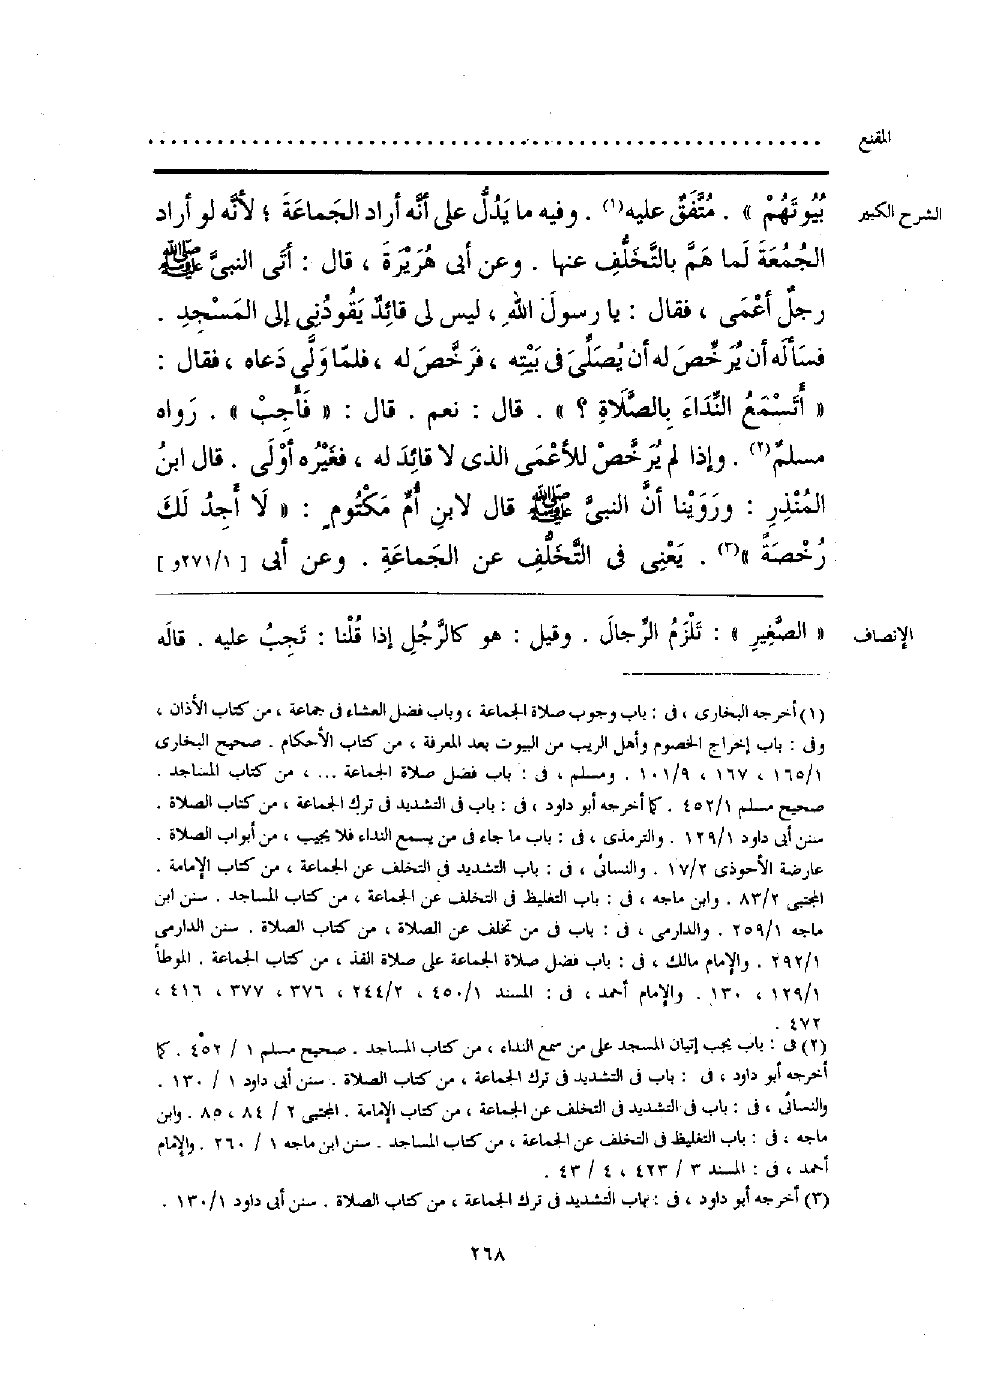 المقنع ......................................................................
الشرح الكبير بُيُوتَهُمْ » . مُتَّفَقٌ عليه(١) . وفيه ما يَدُلُّ على أنَّه أراد الجَماعَةَ ؛ لأنَّه لو أراد
الجُمُعَةَ لَما هَمَّ بالتَّخَلُّفِ عنها . وعن أبى هُرَيْرَةَ ، قال : أتَى النبىَّ ﷺ
رجلٌ أعْمَى ، فقال : يا رسولَ اللهِ ، ليس لى قائِدٌ يَقُودُنِى إلى المَسْجِدِ .
فسَأَلَه أن يُرَخِّصَ له أن يُصَلِّىَ فى بَيْتِه ، فرَخَّصَ له ، فلمّا وَلَّى دَعاه ، فقال :
« أَتَسْمَعُ النِّدَاءَ بِالصَّلَاةِ ؟ » . قال : نعم . قال : « فَأَجِبْ » . رَواه
مسلمٌ(٢) . وإذا لم يُرَخِّصْ للأعْمَى الذى لا قائِدَ له ، فغَيْرُه أوْلَى . قال ابنُ
المُنْذِرِ : ورَوَيْنا أنَّ النبىَّ ﷺ قال لابنِ أُمِّ مَكْتُومٍ : « لَا أَجِدُ لَكَ
رُخْصَةً »(٣) . يَعْنِى فى التَّخَلُّفِ عن الجَماعَةِ . وعن أبى [ ٢٧١/١و ]
الإنصاف « الصَّغِيرِ » : تَلْزَمُ الرِّجالَ . وقيل : هو كالرَّجُلِ إذا قُلْنا : تَجِبُ عليه . قالَه
(١) أخرجه البخارى ، فى : باب وجوب صلاة الجماعة ، وباب فضل العشاء فى جماعة ، من كتاب الأذان ،
وفى : باب إخراج الخصوم وأهل الريب من البيوت بعد المعرفة ، من كتاب الأحكام . صحيح البخارى
١٦٥/١ ، ١٦٧ ، ١٠١/٩ . ومسلم ، فى : باب فضل صلاة الجماعة ... ، من كتاب المساجد .
صحيح مسلم ٤٥٢/١ . كما أخرجه أبو داود ، فى : باب فى التشديد فى ترك الجماعة ، من كتاب الصلاة .
سنن أبى داود ١٢٩/١ . والترمذى ، فى : باب ما جاء فى من يسمع النداء فلا يجيب ، من أبواب الصلاة .
عارضة الأحوذى ١٧/٢ . والنسائى ، فى : باب التشديد فى التخلف عن الجماعة ، من كتاب الإمامة .
المجتبى ٨٣/٢ . وابن ماجه ، فى : باب التغليظ فى التخلف عن الجماعة ، من كتاب المساجد . سنن ابن
ماجه ٢٥٩/١ . والدارمى ، فى : باب فى من تخلف عن الصلاة ، من كتاب الصلاة . سنن الدارمى
٢٩٢/١ . والإمام مالك ، فى : باب فضل صلاة الجماعة على صلاة الفذ ، من كتاب الجماعة . الموطأ
١٢٩/١ ، ١٣٠ . والإمام أحمد ، فى : المسند ٤٥٠/١ ، ٢٤٤/٢ ، ٣٧٦ ، ٣٧٧ ، ٤١٦ ،
٤٧٢ .
(٢) فى : باب يجب إتيان المسجد على من سمع النداء ، من كتاب المساجد . صحيح مسلم ١ / ٤٥٢ . كما
أخرجه أبو داود ، فى : باب فى التشديد فى ترك الجماعة ، من كتاب الصلاة . سنن أبى داود ١ / ١٣٠ .
والنسائى ، فى : باب فى التشديد فى التخلف عن الجماعة ، من كتاب الإمامة . المجتبى ٢ / ٨٤ ، ٨٥ . وابن
ماجه ، فى : باب التغليظ فى التخلف عن الجماعة ، من كتاب المساجد . سنن ابن ماجه ١ / ٢٦٠ . والإمام
أحمد ، فى : المسند ٣ / ٤٢٣ ، ٤ / ٤٣ .
(٣) أخرجه أبو داود ، فى : باب التشديد فى ترك الجماعة ، من كتاب الصلاة . سنن أبى داود ١٣٠/١ .
٢٦٨